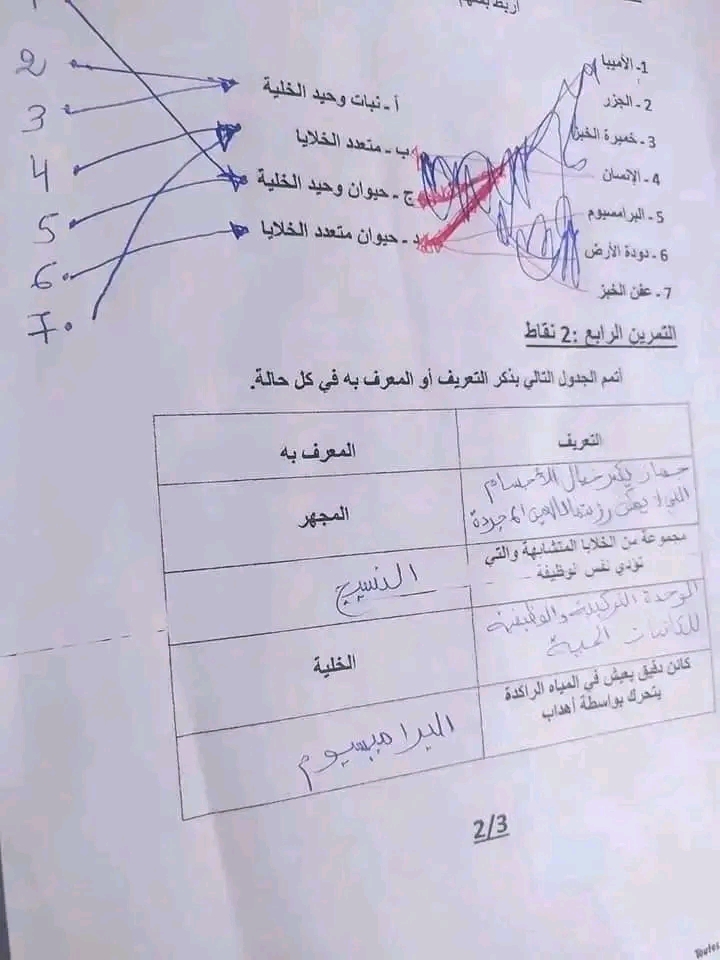 اربط بسهم
1- الأميبا
2- الجزر
3- خميرة الخبز
4- الإنسان
5- البرامسيوم
6- دودة الأرض
7- عفن الخبز
أ - نبات وحيد الخلية
ب - متعدد الخلايا
ج - حيوان وحيد الخلية
د - حيوان متعدد الخلايا
2
3
4
5
6
7
التمرين الرابع :2 نقاط
أتمم الجدول التالي بذكر التعريف أو المعرف به في كل حالة.
التعريف
المعرف به
الأجسام
التي لا يمكن رؤيتها بالعين المجردة
المجهر
مجموعة من الخلايا المتشابهة والتي
تؤدي نفس الوظيفة
النسيج
الوحدة التركيبية والوظيفية
للكائنات الحية
الخلية
كائن دقيق يعيش في المياه الراكدة
يتحرك بواسطة أهداب
البراميسيوم
2/3
Toutes